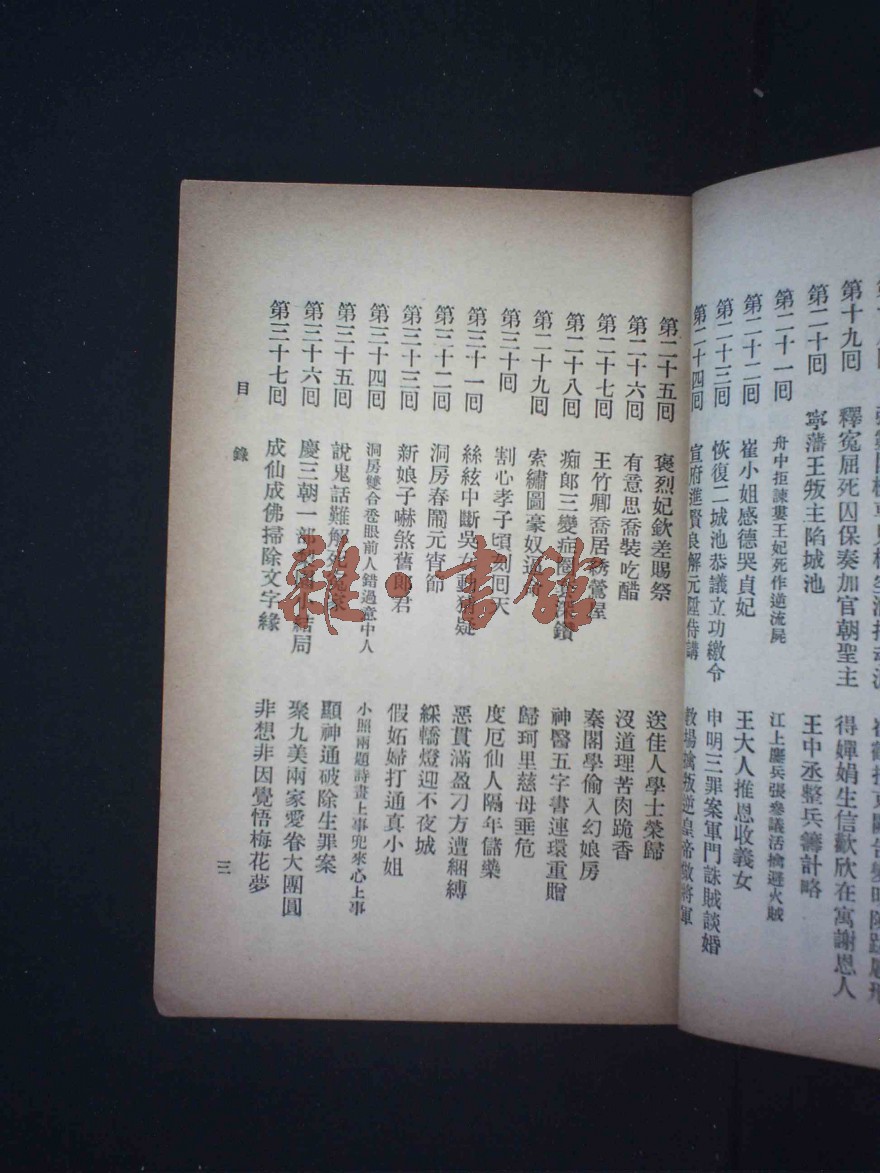 第十九回　釋冤屈死囚保奏加官朝聖主　得嬋娟生信歡欣在寓謝恩人
第二十回　寧藩王叛主陷城池　王中丞整兵籌計略
第二十一回　舟中拒諫婁王妃死作逆流屍　江上鏖兵張參議活擒避火賊
第二十二回　崔小姐感德哭貞妃　王大人推恩收義女
第二十三回　恢復二城池恭議立功繳令　申明三罪案軍門誅賊談婚
第二十四回　宣府進賢良解元陞侍講　教場擒叛逆皇帝做將軍
第二十五回　褒烈妃欽差賜祭　送佳人學士榮歸
第二十六回　有意思喬裝吃醋　沒道理苦肉跪香
第二十七回　王竹卿喬居綉鶯屋　秦閣學偷入幻娘房
第二十八回　痴郎三變症　神醫五字書連環重贈
第二十九回　索繡圖豪奴逼　歸珂里慈母垂危
第三十回　割心孝子頃刻回天　度厄仙人隔年儲藥
第三十一回　絲絃中斷吳女動猜疑　惡貫滿盈刁方遭綑縛
第三十二回　洞房春鬧元宵節　綵轎燈迎不夜城
第三十三回　新娘子嚇煞舊郎君　假妬婦打通真小姐
第三十四回　洞房雙合卺眼前人錯過意中人　小照兩題詩畫上事兜來心上事
第三十五回　說鬼話難解死冤家　顯神通破除生罪案
第三十六回　慶三朝一部　結局　聚九美兩家愛眷大團圓
第三十七回　成仙成佛掃除文字緣　非想非因覺悟梅花夢
目錄　三
雜·書館